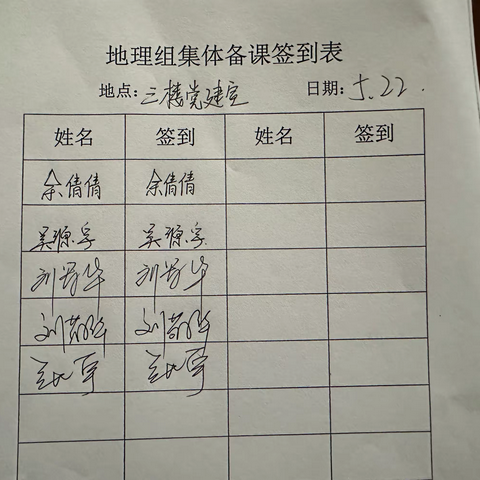 地理组集体备课签到表
地点：三楼党建室 日期：5.22.
姓名 签到 姓名 签到
余倩倩 余倩倩
吴源字 吴源字
刘芳华 刘芳华
刘